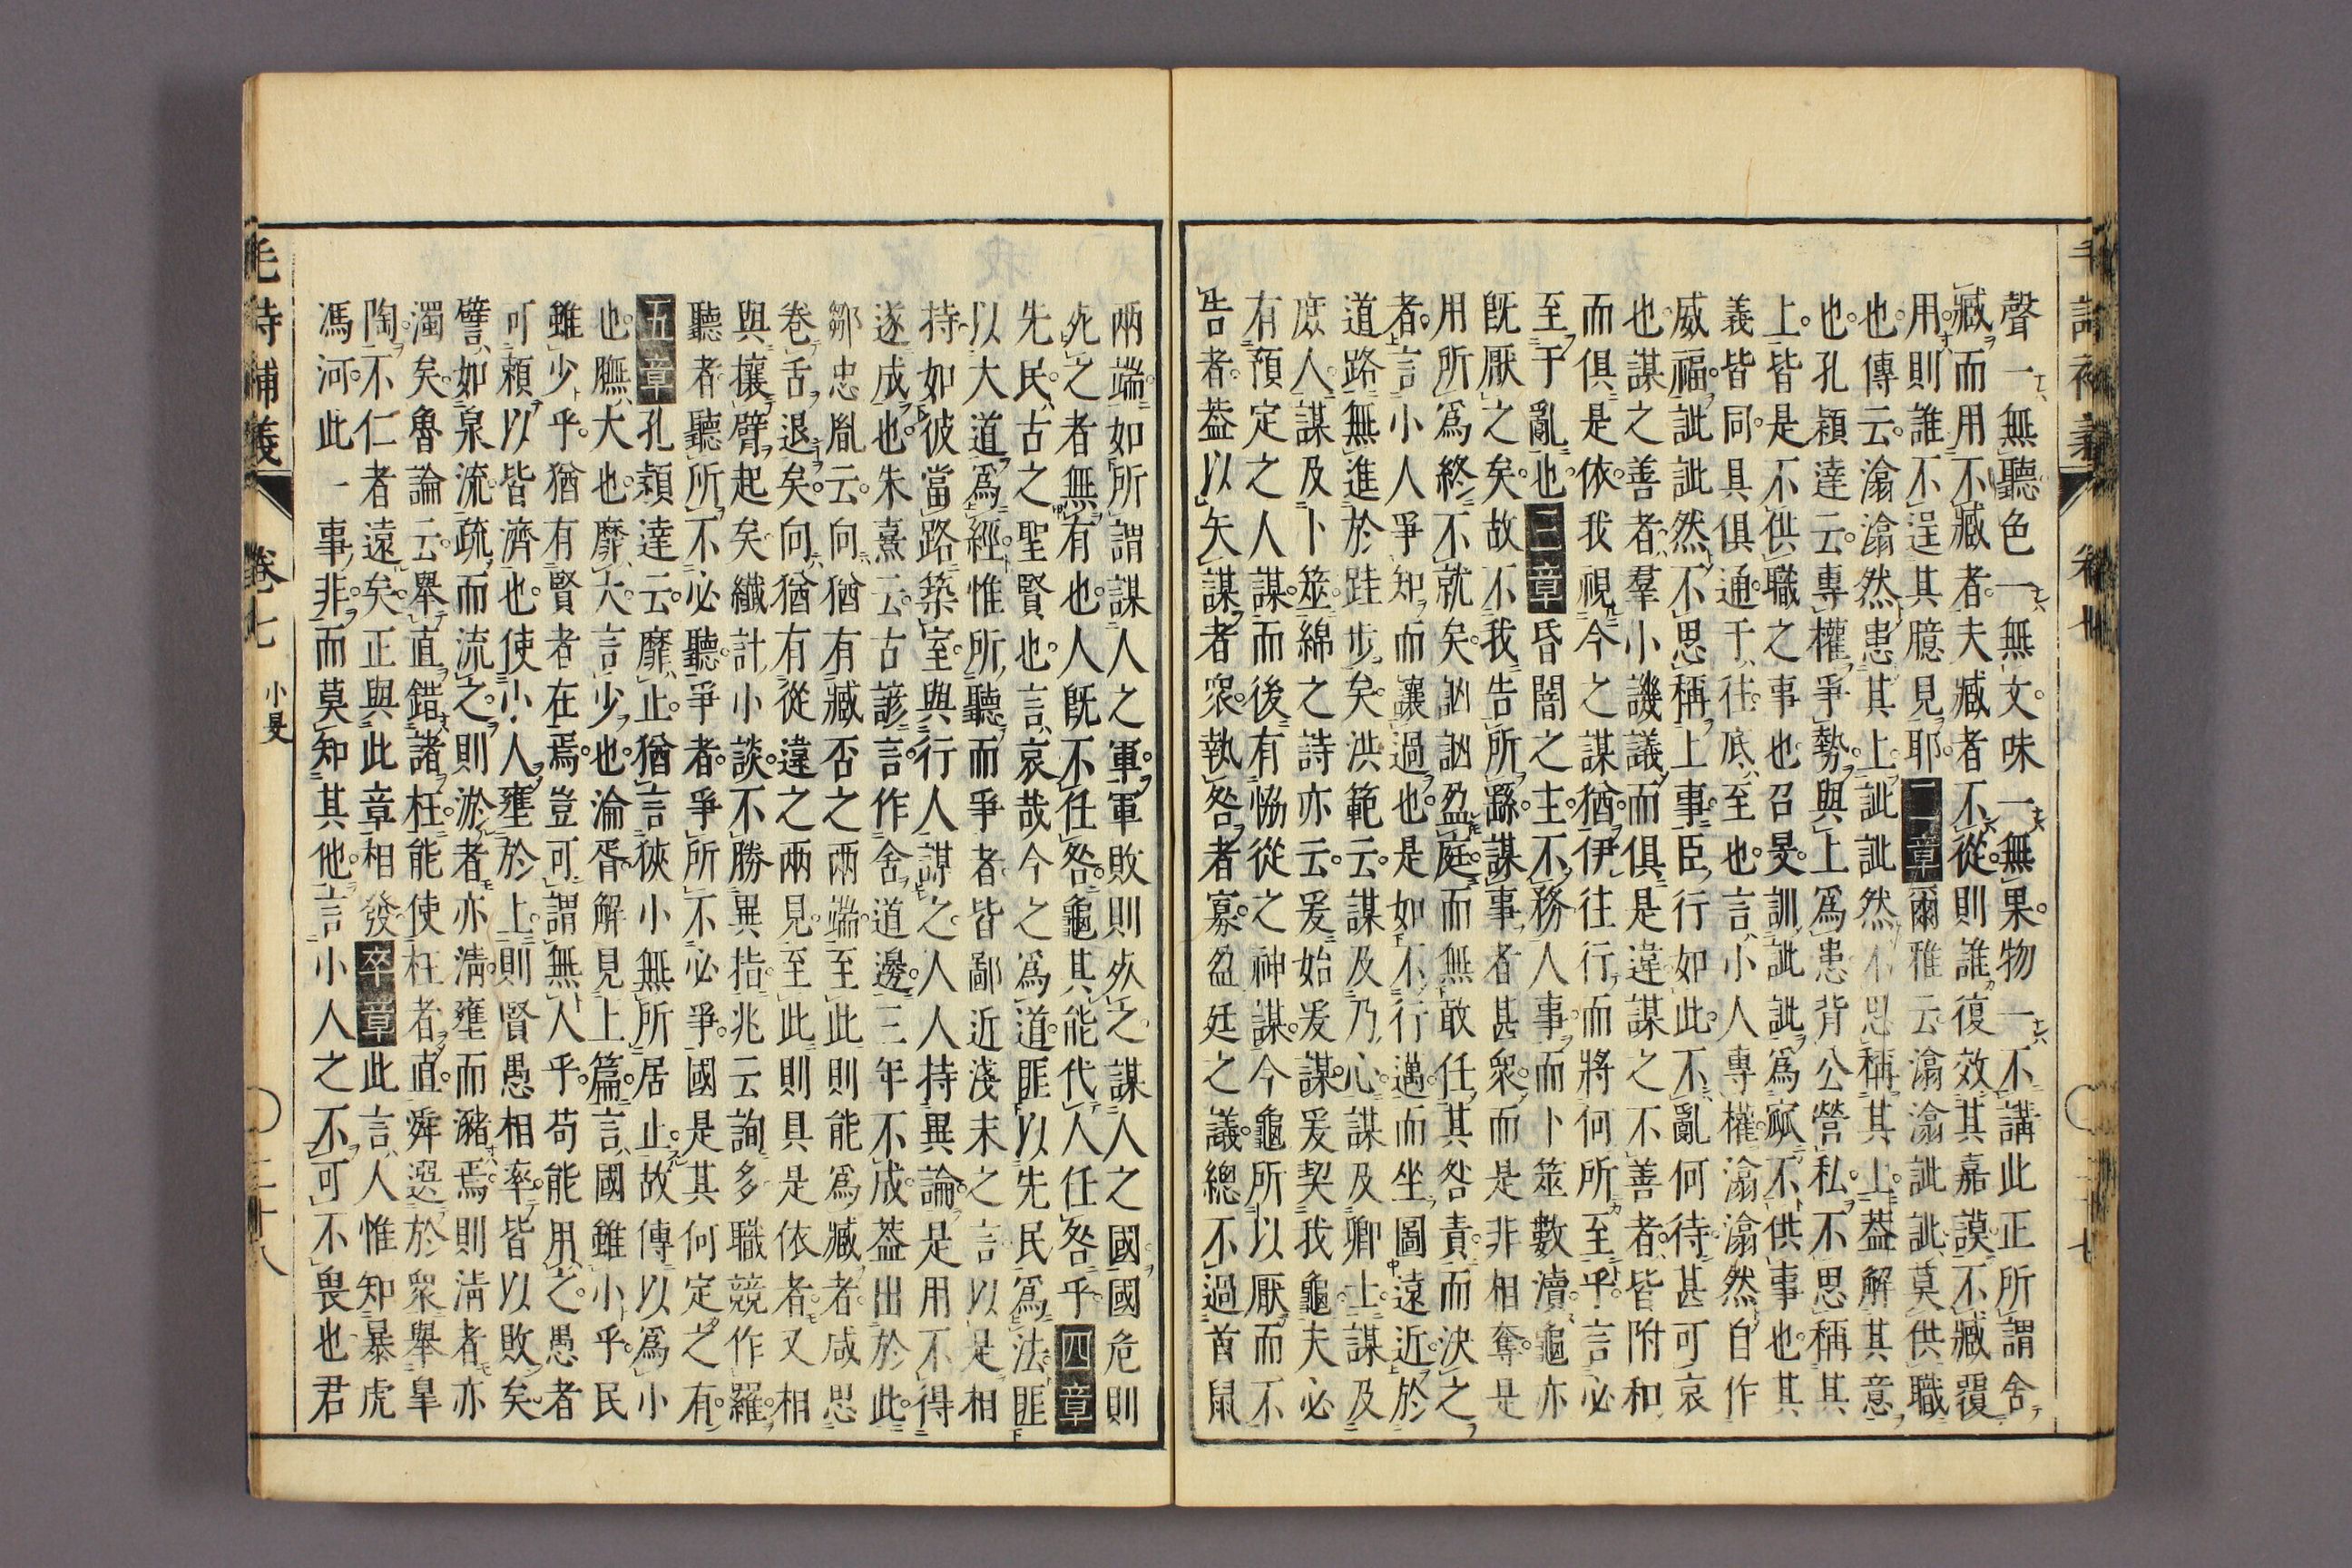 聲一無聽色一無文味一無果物一不講此正所謂舍
臧而用不臧者夫臧者不從則誰復效其嘉謨不臧覆
用則誰不逞其臆見耶二章爾雅云滃滃訿訿莫供職
也傳云滃滃然患其上訿訿然不思稱其上葢解其意
也孔穎達云專權爭勢與上爲患背公營私不思稱其
上皆是不供職之事也召旻訓訿訿爲窳不供事也其
義皆同具俱通于往底至也言小人專權滃滃然自作
威福訿訿然不思稱上事臣行如此不亂何待甚可哀
也謀之善者羣小譏議而俱是違謀之不善者皆附和
而俱是依我視今之謀猶伊往行而將何所至乎言必
至于亂也三章昏闇之主不務人事而卜筮數瀆龜亦
既厭之矣故不我告所繇謀事者甚衆而是非相奪是
用所爲終不就矣訩訩盈庭而無敢任其咎責而決之
者言小人爭知而讓過也是如不行邁而坐圖遠近於
道路無進於跬步矣洪範云謀及乃心謀及卿士謀及
庶人謀及卜筮綿之詩亦云爰始爰謀爰契我龜夫必
有預定之人謀而後有恊從之神謀今龜所以厭而不
告者葢以矢謀者衆執咎者寡盈廷之議總不過首鼠
兩端如所謂謀人之軍軍敗則死之謀人之國國危則
死之者無有也人既不任咎龜其能代人任咎乎四章
先民古之聖賢也言哀哉今之爲道匪以先民爲法匪
以大道爲經惟所聽而爭者皆鄙近淺末之言以是相
持如彼當路築室與行人謀之人人持異論是用不得
遂成也朱熹云古諺言作舍道邊三年不成葢出於此
鄒忠胤云向猶有臧否之兩端至此則能爲臧者咸思
卷舌退矣向猶有從違之兩見至此則具是依者又相
與攘臂起矣纖計小談不勝異指兆云詢多職競作羅
聽者聽所不必聽爭者爭所不必爭國是其何定之有
五章孔穎達云靡止猶言狹小無所居止故傳以爲小
也膴大也靡大言少也淪胥解見上篇言國雖小乎民
雖少乎猶有賢者在焉豈可謂無人乎苟能用之愚者
可賴以皆濟也使小人壅於上則賢愚相率皆以敗矣
譬如泉流疏而流之則淤者亦淸壅而瀦焉則淸者亦
濁矣魯論云舉直錯諸枉能使枉者直舜選於衆舉皐
陶不仁者遠矣正與此章相發卒章此言人惟知暴虎
馮河此一事非而莫知其他言小人之不可不畏也君
毛詩補義 卷七 小旻 二十八